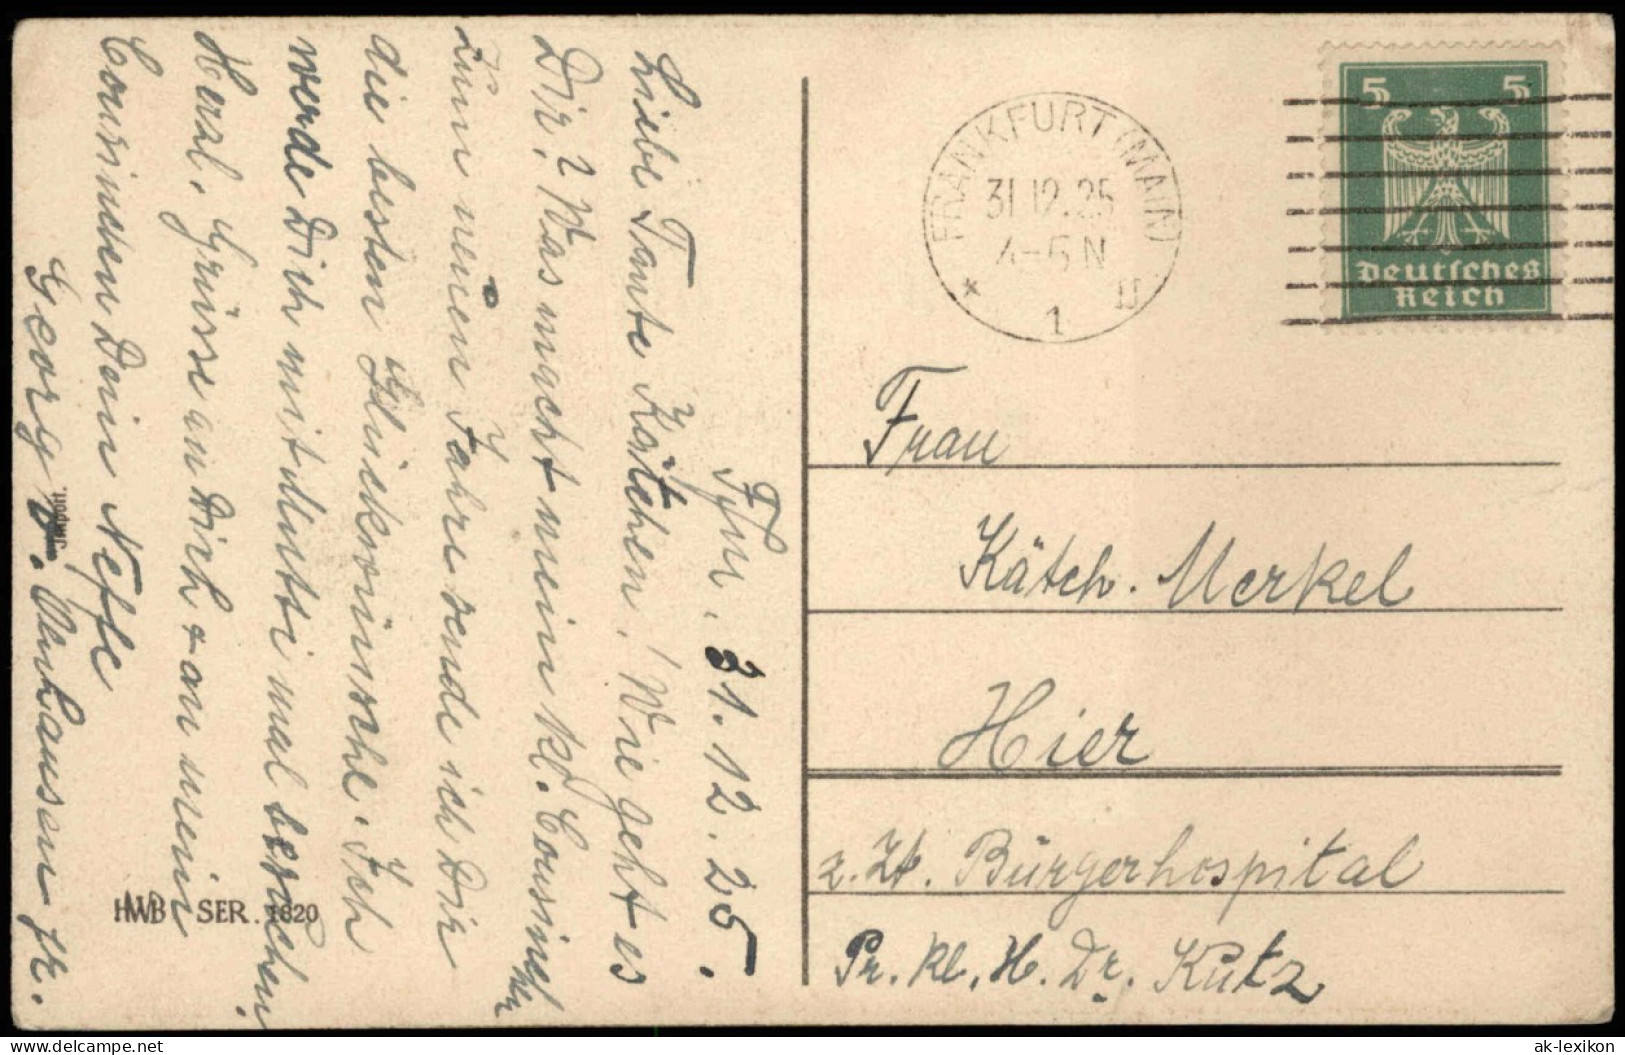 Ffm. 31.12.25.
Liebe Tante Kätchen! Wie geht es
Dir? Was macht mein kl. Cousinchen
Zum neuen Jahre sende ich Dir
die besten Glückwünsche. Ich
werde Dich mit Mutti mal besuchen.
Herzl. Grüsse an Dich + an mein
Cousinchen Dein Neffe
Georg jr.
Import.
HWB SER. 1820
FRANKFURT (MAIN)
31.12.25
4-5 N
* 1 II
5 5
Deutsches
Reich
Frau
Kätch. Merkel
Hier
z. Zt. Bürgerhospital
Pr. Kl. H. Dr. Kutz
www.ak-ansichtskarten.de
ak-lexikon